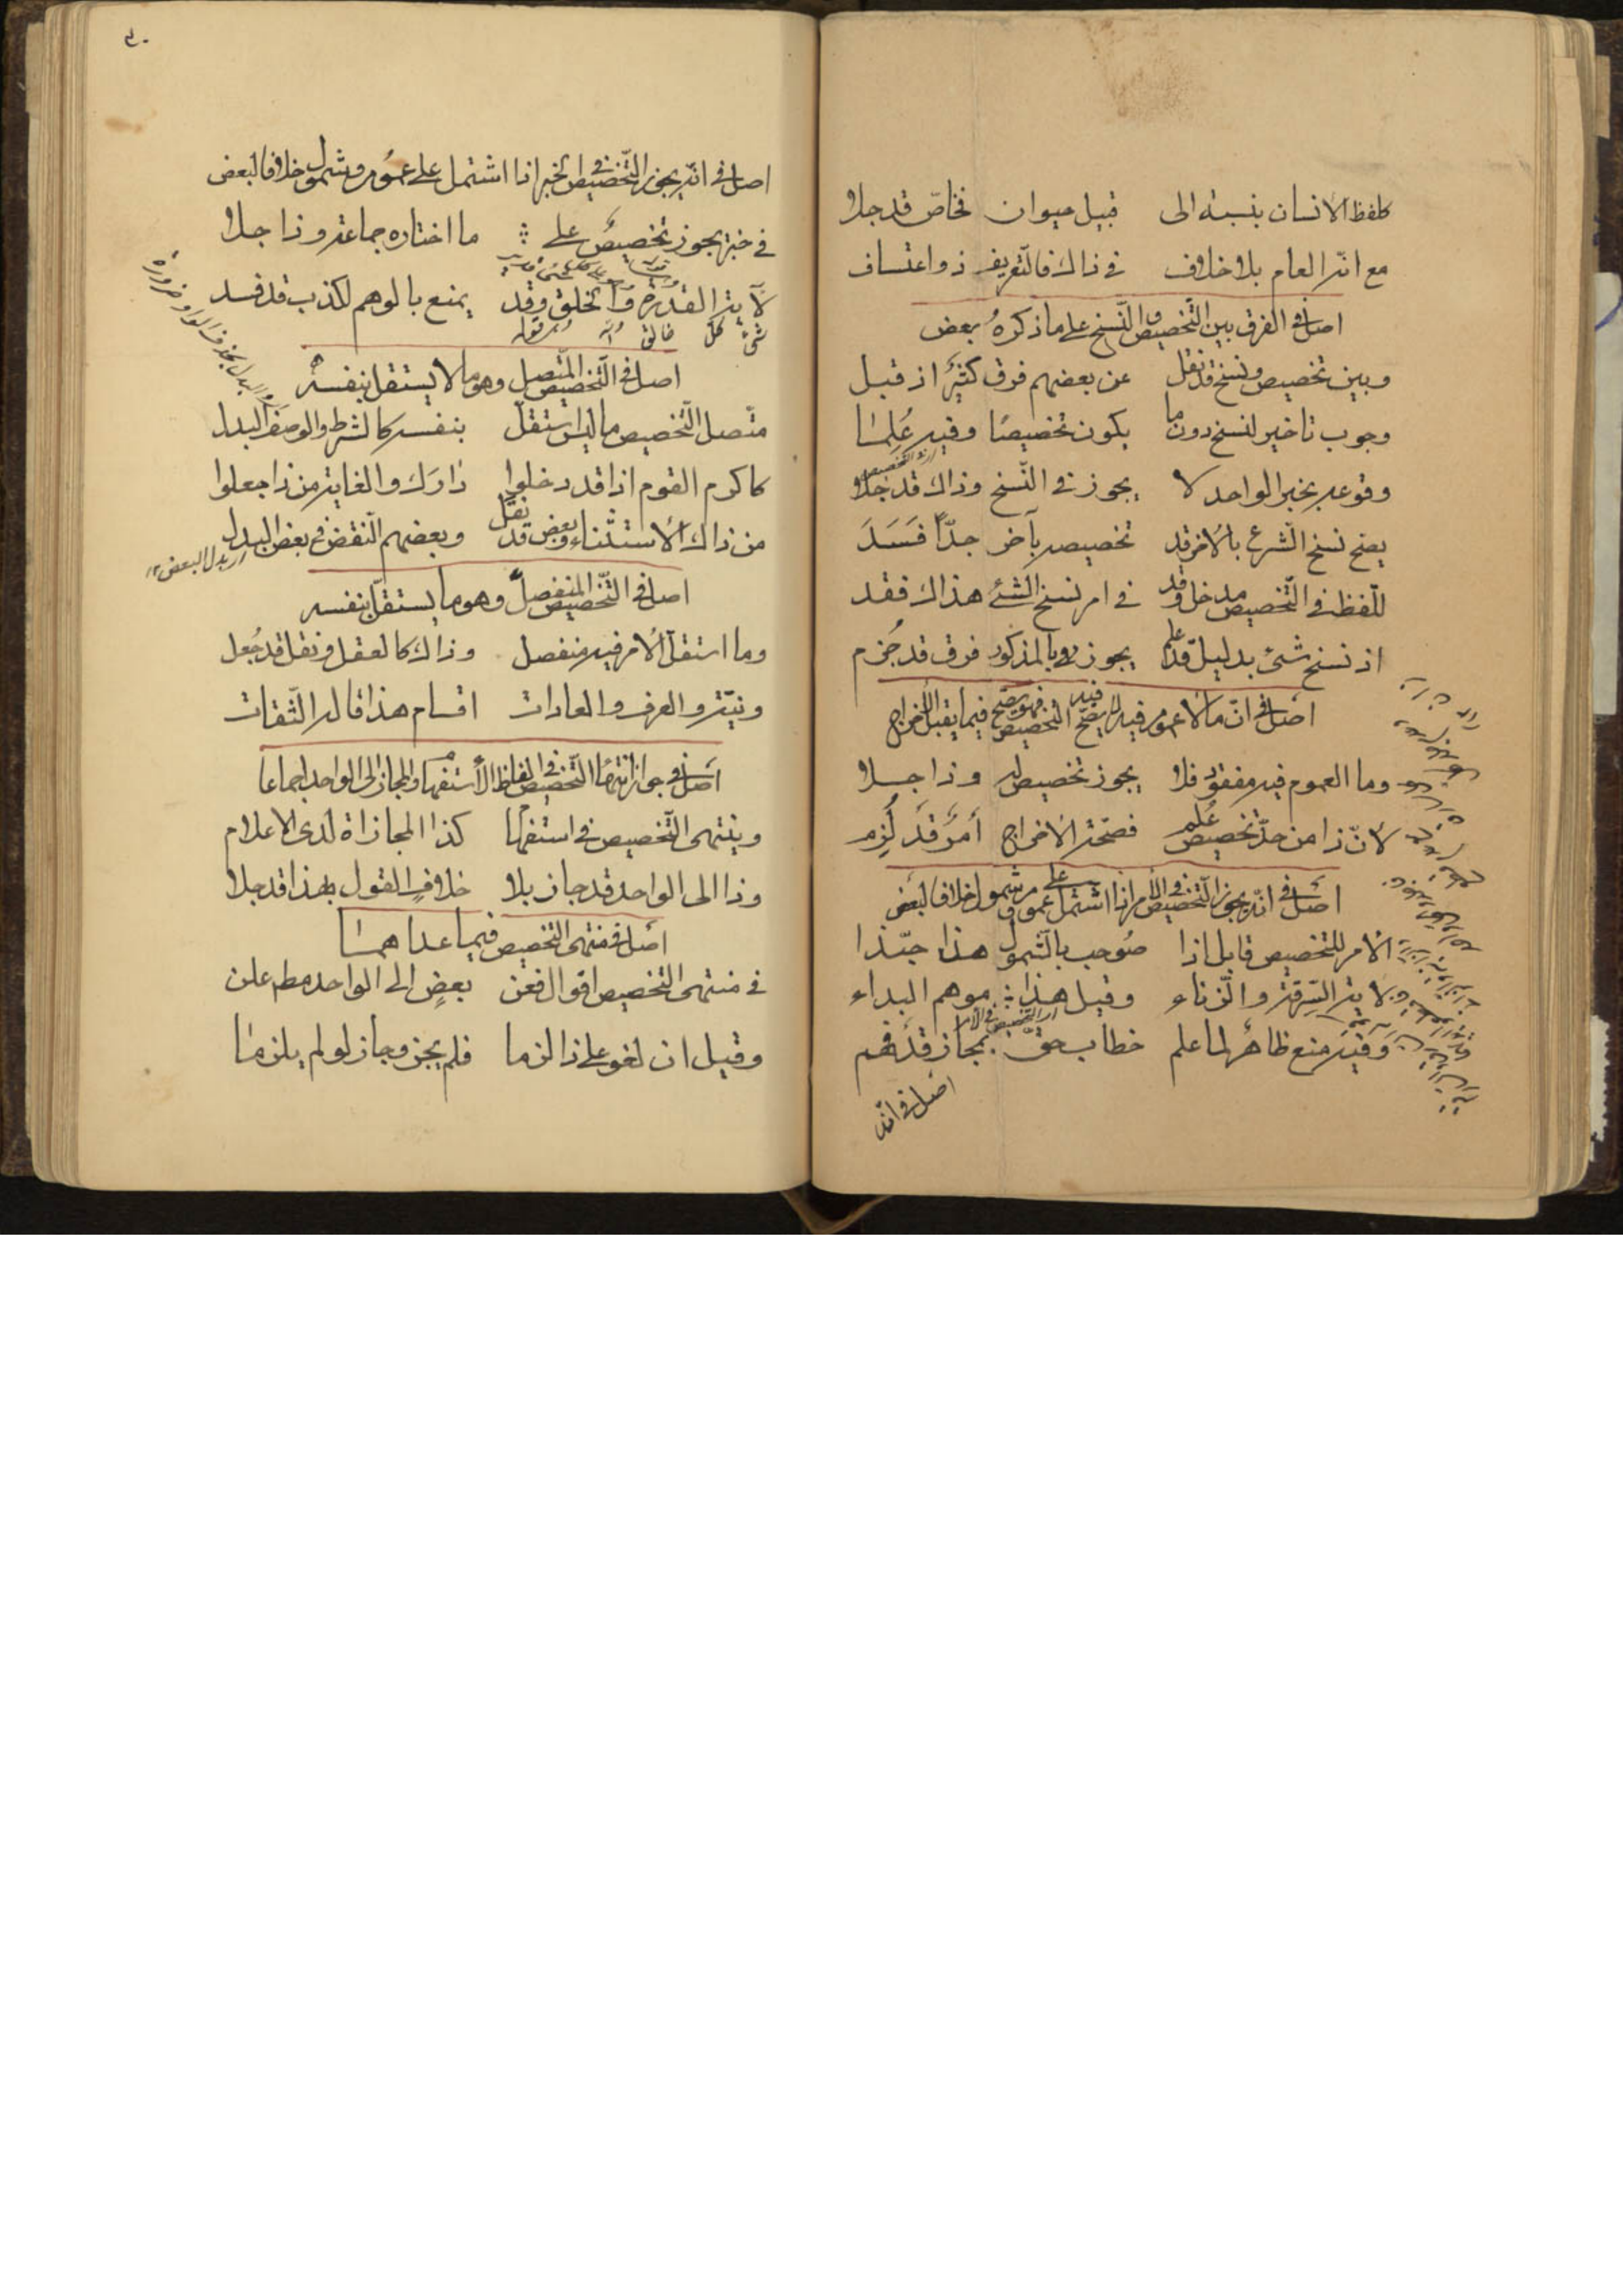 كلفظ الانسان بنسبة الى قبيل حيوان فخاصّ قد جلا
مع انّه العام بلا خلاف في ذاك فالتعريف ذو اعتساف
اصل في الفرق بين التخصيص و النّسخ على ما ذكره بعض
وبين تخصيص ونسخ قد نقل عن بعضهم فرق كثير اذ قيل
وجوب تاخير لنسخ دون ما يكون تخصيصًا وفيه عُلِمَا
اى التخصيص
وقوعه بخبر الواحد لا يجوز في النّسخ وذاك قد جلا
يصح نسخ الشّرع بالاخر قد تخصيصه بآخر جدّاً فَسَدَ
للّفظ في التّخصيص مدخل وقد في امر نسخ الشئ هذاك فقد
اذ نسخ شئ بدليل قد علم يجوز وبالمذكور فرق قد جُزم
اصل في انّ ما لا عموم فيه لا يصحّ فيه التخصيص فيما يقبل الاخراج
وما العموم فيه مفقود فلا يجوز تخصيص له وذا جلا
لانّ ذا من حدّ تخصيص عُلم فصحّة الاخراج أمر قد لُزم
اصل في انّه يجوز التخصيص في الأمر اذا اشتمل على عموم و شمول خلافا لبعض
الامر للتخصيص قابل اذا صُوحب بالشّمول هذا حبّذا
لاية السّرقة والزّناء وقيل هذا موهم البداء
اى التخصيص في الامر
وفيه منع ظاهر لما علم خطاب حق بمجاز قد فهم
اصل في انّه
اصل في انّه يجوز التّخصيص في الخبر اذا اشتمل على عموم وشمول خلافا لبعض
في خبر يجوز تخصيص على ما اختاره جماعة وذا جلا
على كل شئ قدير
لآية القدرة والخلق وقد يمنع بالوهم لكذب قد فسد
خالق كلّ شئ
اصل في التّخصيص المتّصل وهو ما لا يستقل بنفسه
متّصل التّخصيص ما ليس استقلّ بنفسه كالشرط والوصف البدل
كاكرم القوم اذا قد دخلوا دارك والغاية من ذا جعلوا
من ذاك الاستثناء وبعض قد نقل وبعضهم النّقض في بعض البدل
اى بدل البعض
اصل في التّخصيص المنفصل وهو ما يستقلّ بنفسه
وما استقلّ الأمر فيه منفصل وذاك كالعقل ونقل قد جُعل
ونيّة والعرف والعادات اقسام هذا قاله الثّقات
اصل في جواز انتهاء التّخصيص في الفاظ الأستفهام والمجاز الى الواحد اجماعا
وينتهى التّخصيص في استفهام كذا المجازاة لدى الاعلام
وذا الى الواحد قد جاز بلا خلافٍ القول بهذا قد جلا
اصل في منتهى التخصيص فيما عداهما
في منتهى التخصيص اقوال فعن بعضٍ الى الواحد مط علن
وقيل ان لغو على ذا لزما فلم يجز وجاز لو لم يلزما